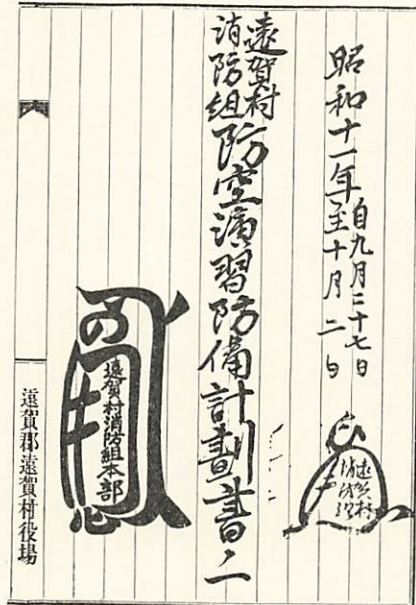 昭和十一年自九月二十七日
至十月二日
遠賀村
消防組
遠賀村
消防組防空演習防備計劃書ノ二
遠賀村消防組本部
遠賀郡遠賀村役場